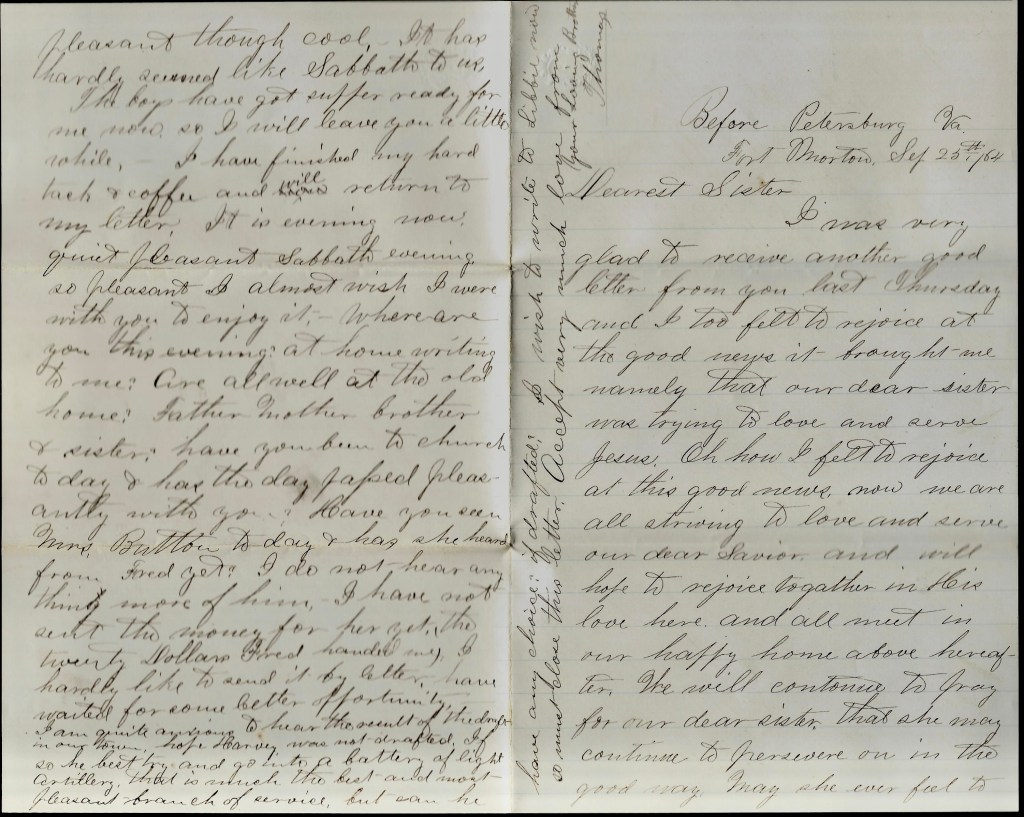 Before Petersburg Va.
Fort Morton, Sep 25th /64
Dearest Sister
I was very
glad to receive another good
letter from you last Thursday
and I too felt to rejoice at
the good news it brought me
namely that our dear sister
was trying to love and serve
Jesus. Oh how I felt to rejoice
at this good news, now we are
all striving to love and serve
our dear Savior, and will
hope to rejoice together in His
love here. and all meet in
our happy home above hereaf-
ter. We will continue to pray
for our dear sister, that she may
continue to persevere on in the
good way, May she ever feel to
pleasant though cool, - It has
hardly seemed like Sabbath to us,
The boys have got supper ready for
me now, so I will leave you a little
while, - I have finished my hard
tack & coffee and will return to
my letter, It is evening now,
quiet pleasant Sabbath evening
so pleasant I almost wish I were
with you to enjoy it, - Where are
you this evening? at home writing
to me? Are all well at the old
home? Father Mother brother
& sister? have you been to church
to day & has the day passed pleas-
antly with you? Have you seen
Mrs. Button to day & has she heard
from Fred yet? I do not hear any
thing more of him, - I have not
sent the money for her yet, the
twenty Dollars Fred handed me, I
hardly like to send it by letter, have
waited for some better opportunity,
I am quite anxious to hear the result of the draft
in our town, hope Harvey was not drafted, If
so he best try and go into a battery of light
artillery, that is much the best and most
pleasant branch of service, but can he
have any choice? if drafted? I wish to write to Libbie now
so must close this letter, Accept very much love from
your loving brother
Thomas